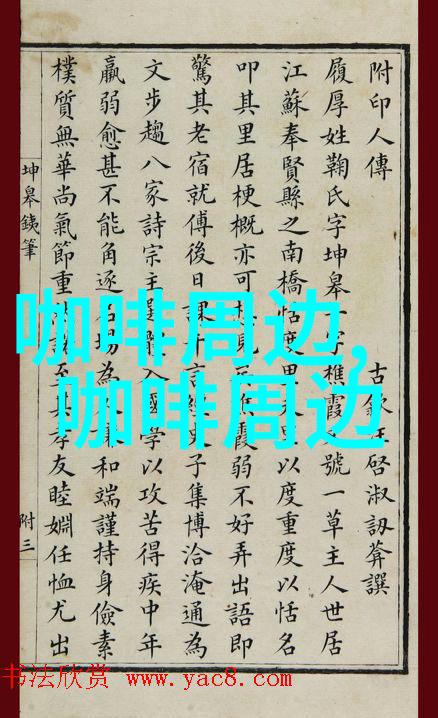 附印人傳
古歙汪啓淑訒葊譔
履厚姓鞠氏字坤皋一字樵霞又號一草主人世居
江蘇奉賢縣之南橋恬度里
以度重度以恬名
叩其里居梗概亦可想見
樵霞弱不好弄出語即
驚其老宿就傅後日課千言經史子集博洽淹通為
文步趨八家詩宗主
入國學以攻苦得疾中年
羸弱愈甚不能角逐名場為人
和端謹持身儉素
樸質無華尚氣節重
至其孝友睦婣任恤尤出
坤皋鐵筆
附三
咖啡周边,
咖啡周边
书法欣赏 www.yac8.com